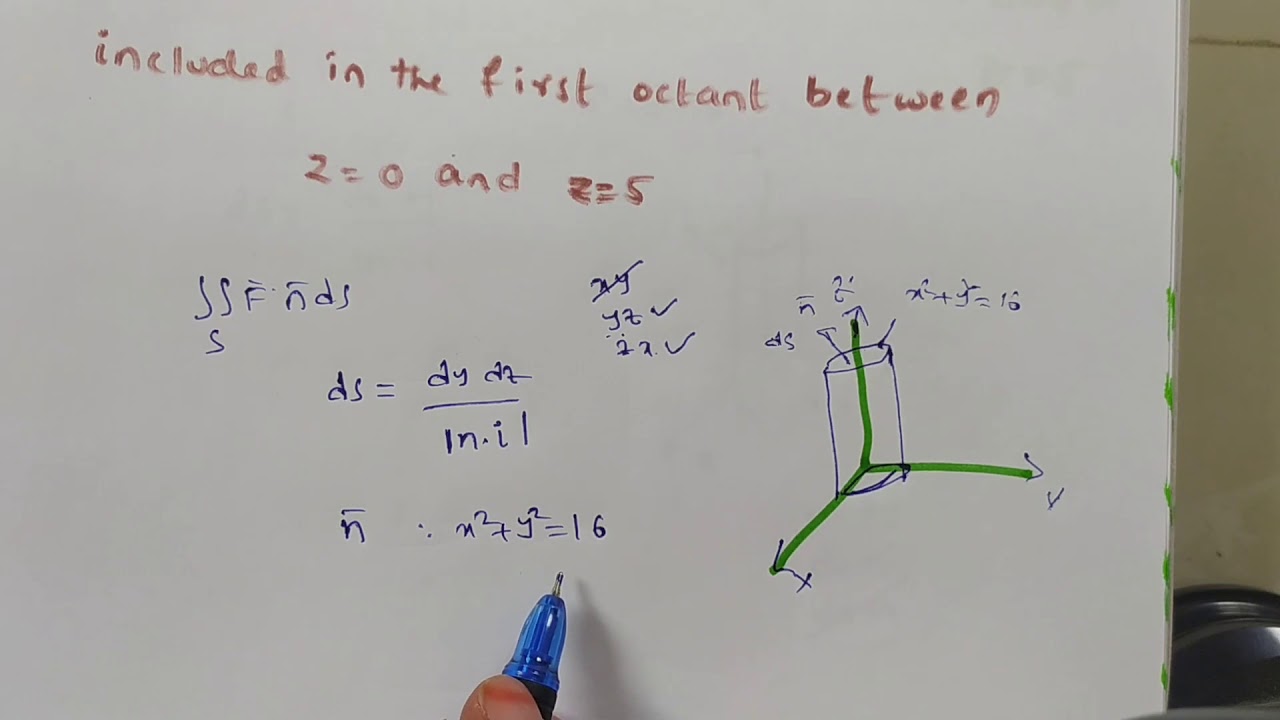 included in the first octant between
z=0 and z=5
∬ F̄·n̄ ds
S
xy
yz ✓
zx. ✓
ds = dy dz / |n·i|
n̄ : x²+y²=16
z
n̄
ds
x²+y²=16
y
x